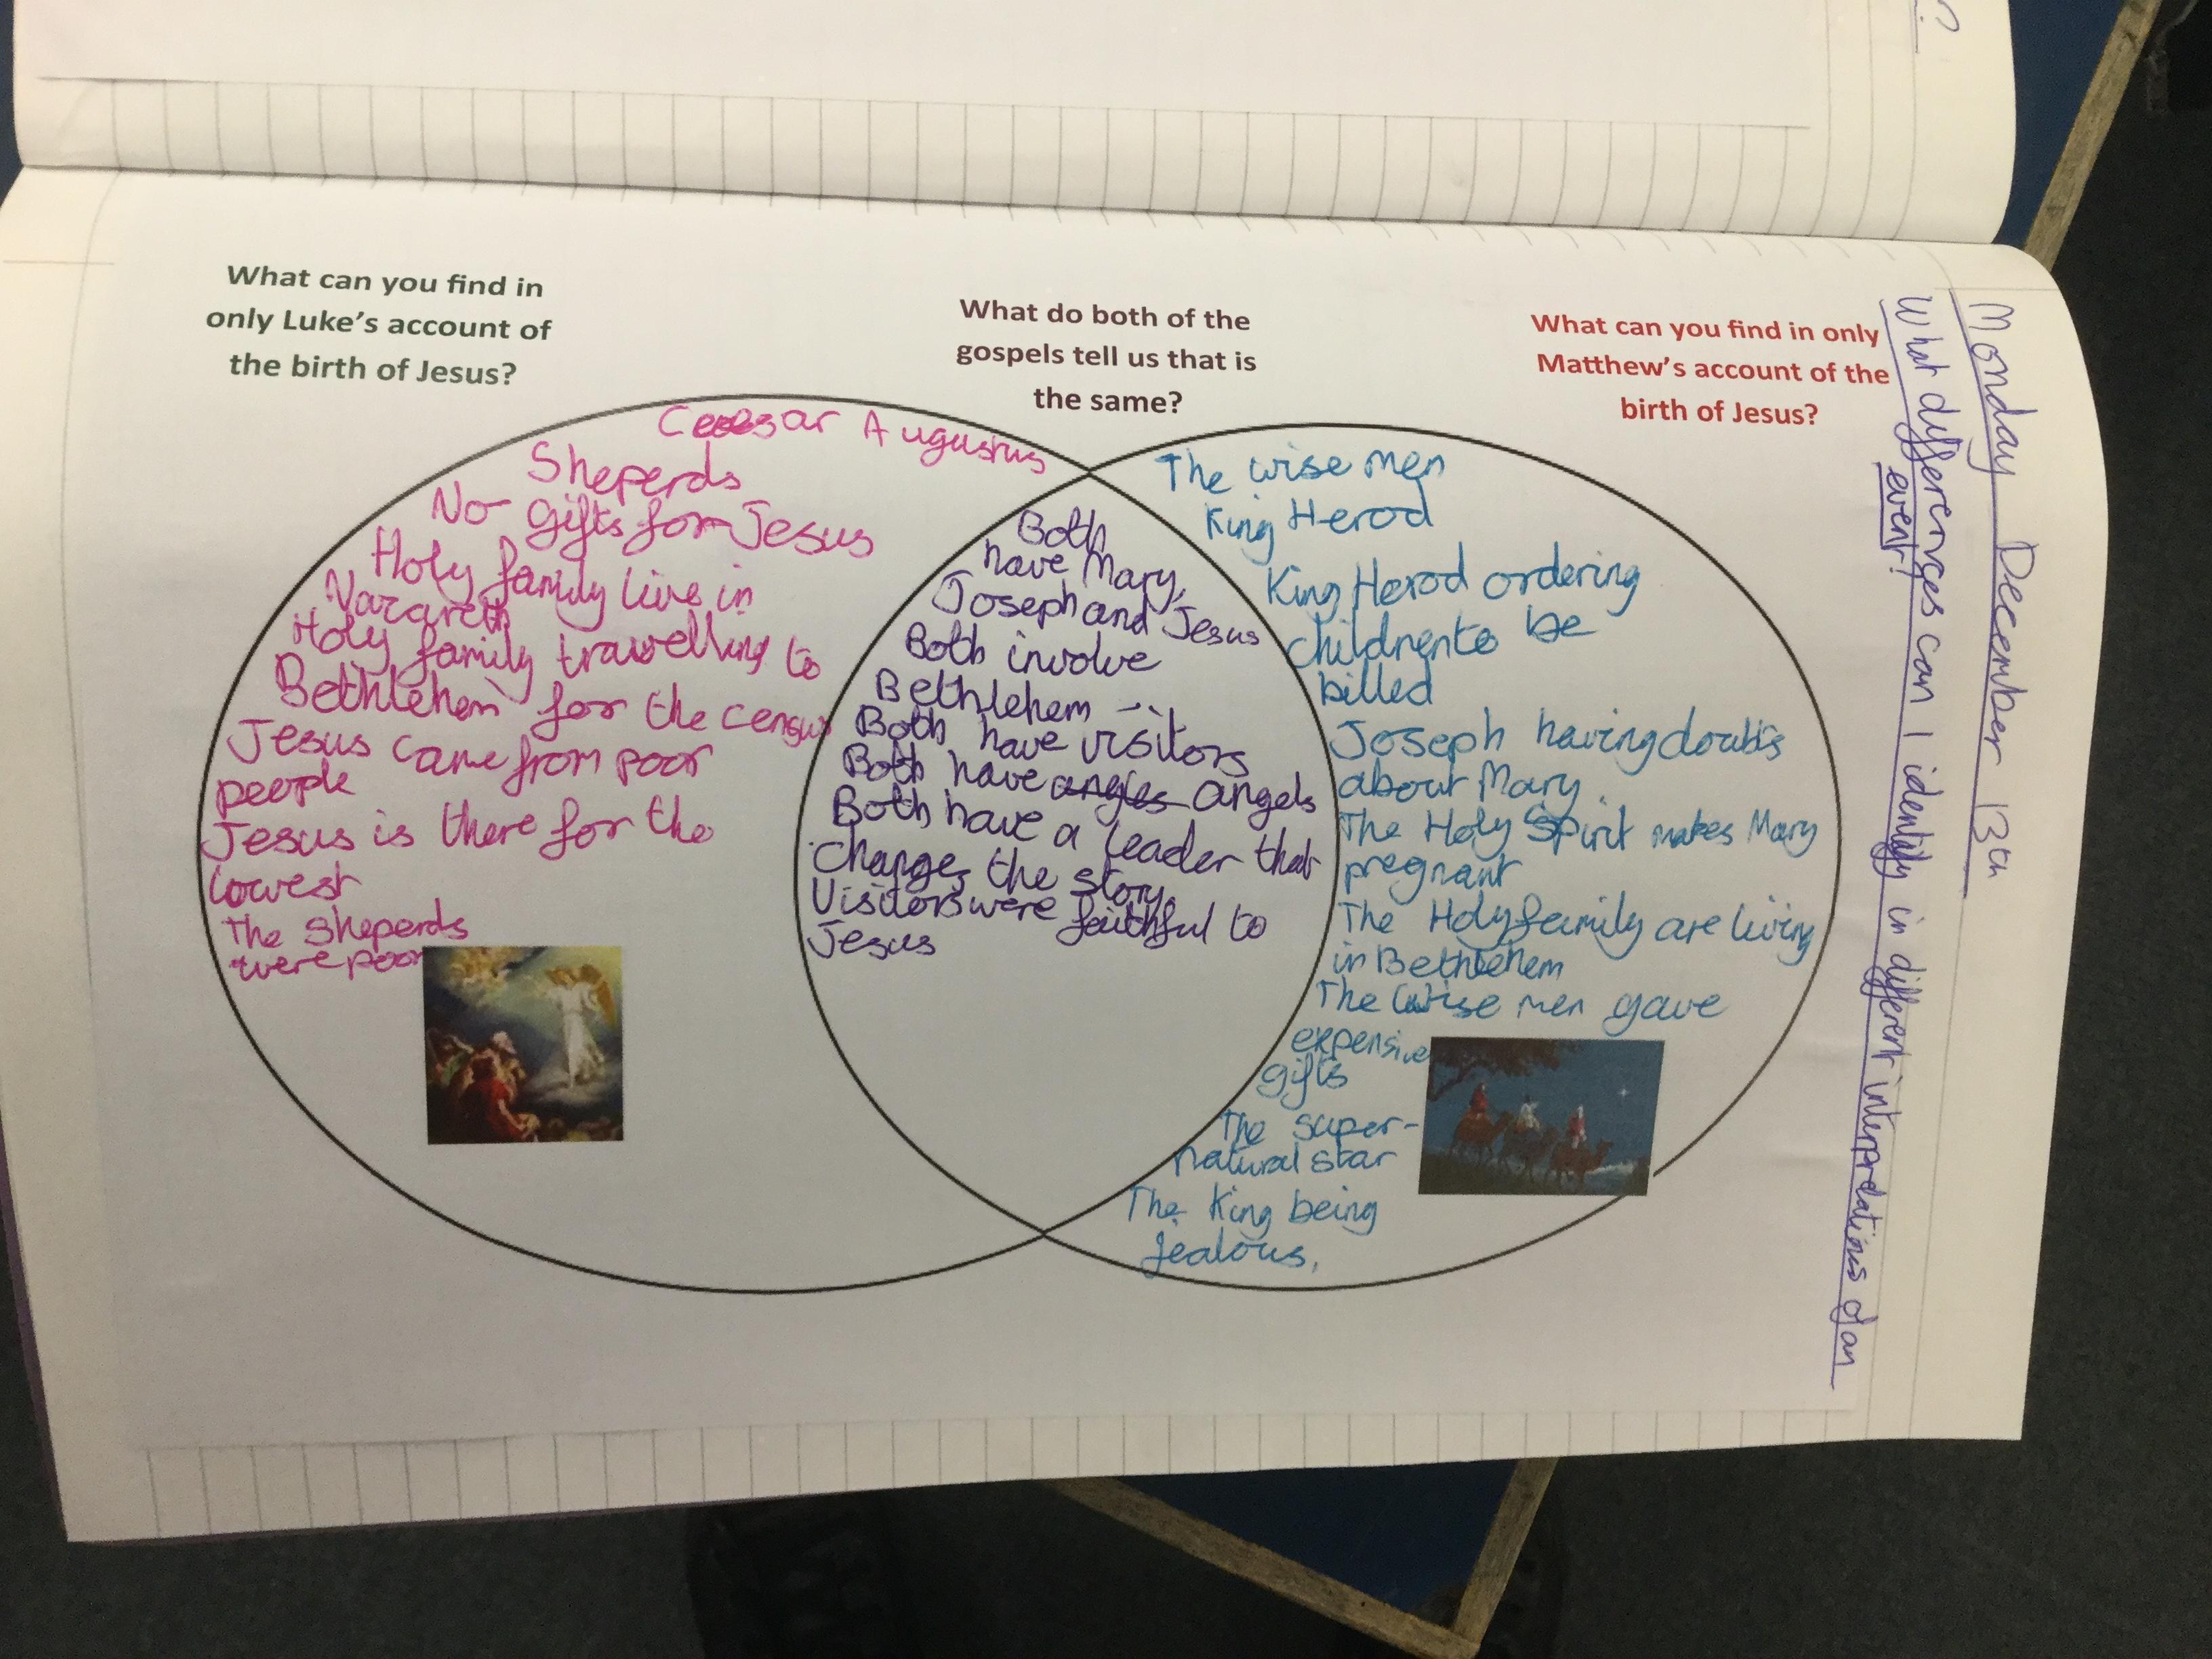 ?
Monday December 13th
What differences can I identify in different interpretations of an
event?
What can you find in
only Luke's account of
the birth of Jesus?
What do both of the
gospels tell us that is
the same?
What can you find in only
Matthew's account of the
birth of Jesus?
Caesar Augustus
Sheperds
No gifts for Jesus
Holy family live in
Nazareth
Holy family travelling to
Bethlehem for the census
Jesus came from poor
people
Jesus is there for the
lowest
The Sheperds
were poor
Both
have Mary,
Joseph and Jesus
Both involve
Bethlehem
Both have visitors
Both have angles angels
Both have a leader that
changes the story.
Visitors were faithful to
Jesus
The wise men
King Herod
King Herod ordering
childrento be
billed
Joseph having doubts
about Mary.
The Holy Spirit makes Mary
pregnant
The Holy family are living
in Bethlehem
The Wise men gave
expensive
gifts
The super-
natural star
The King being
jealous.